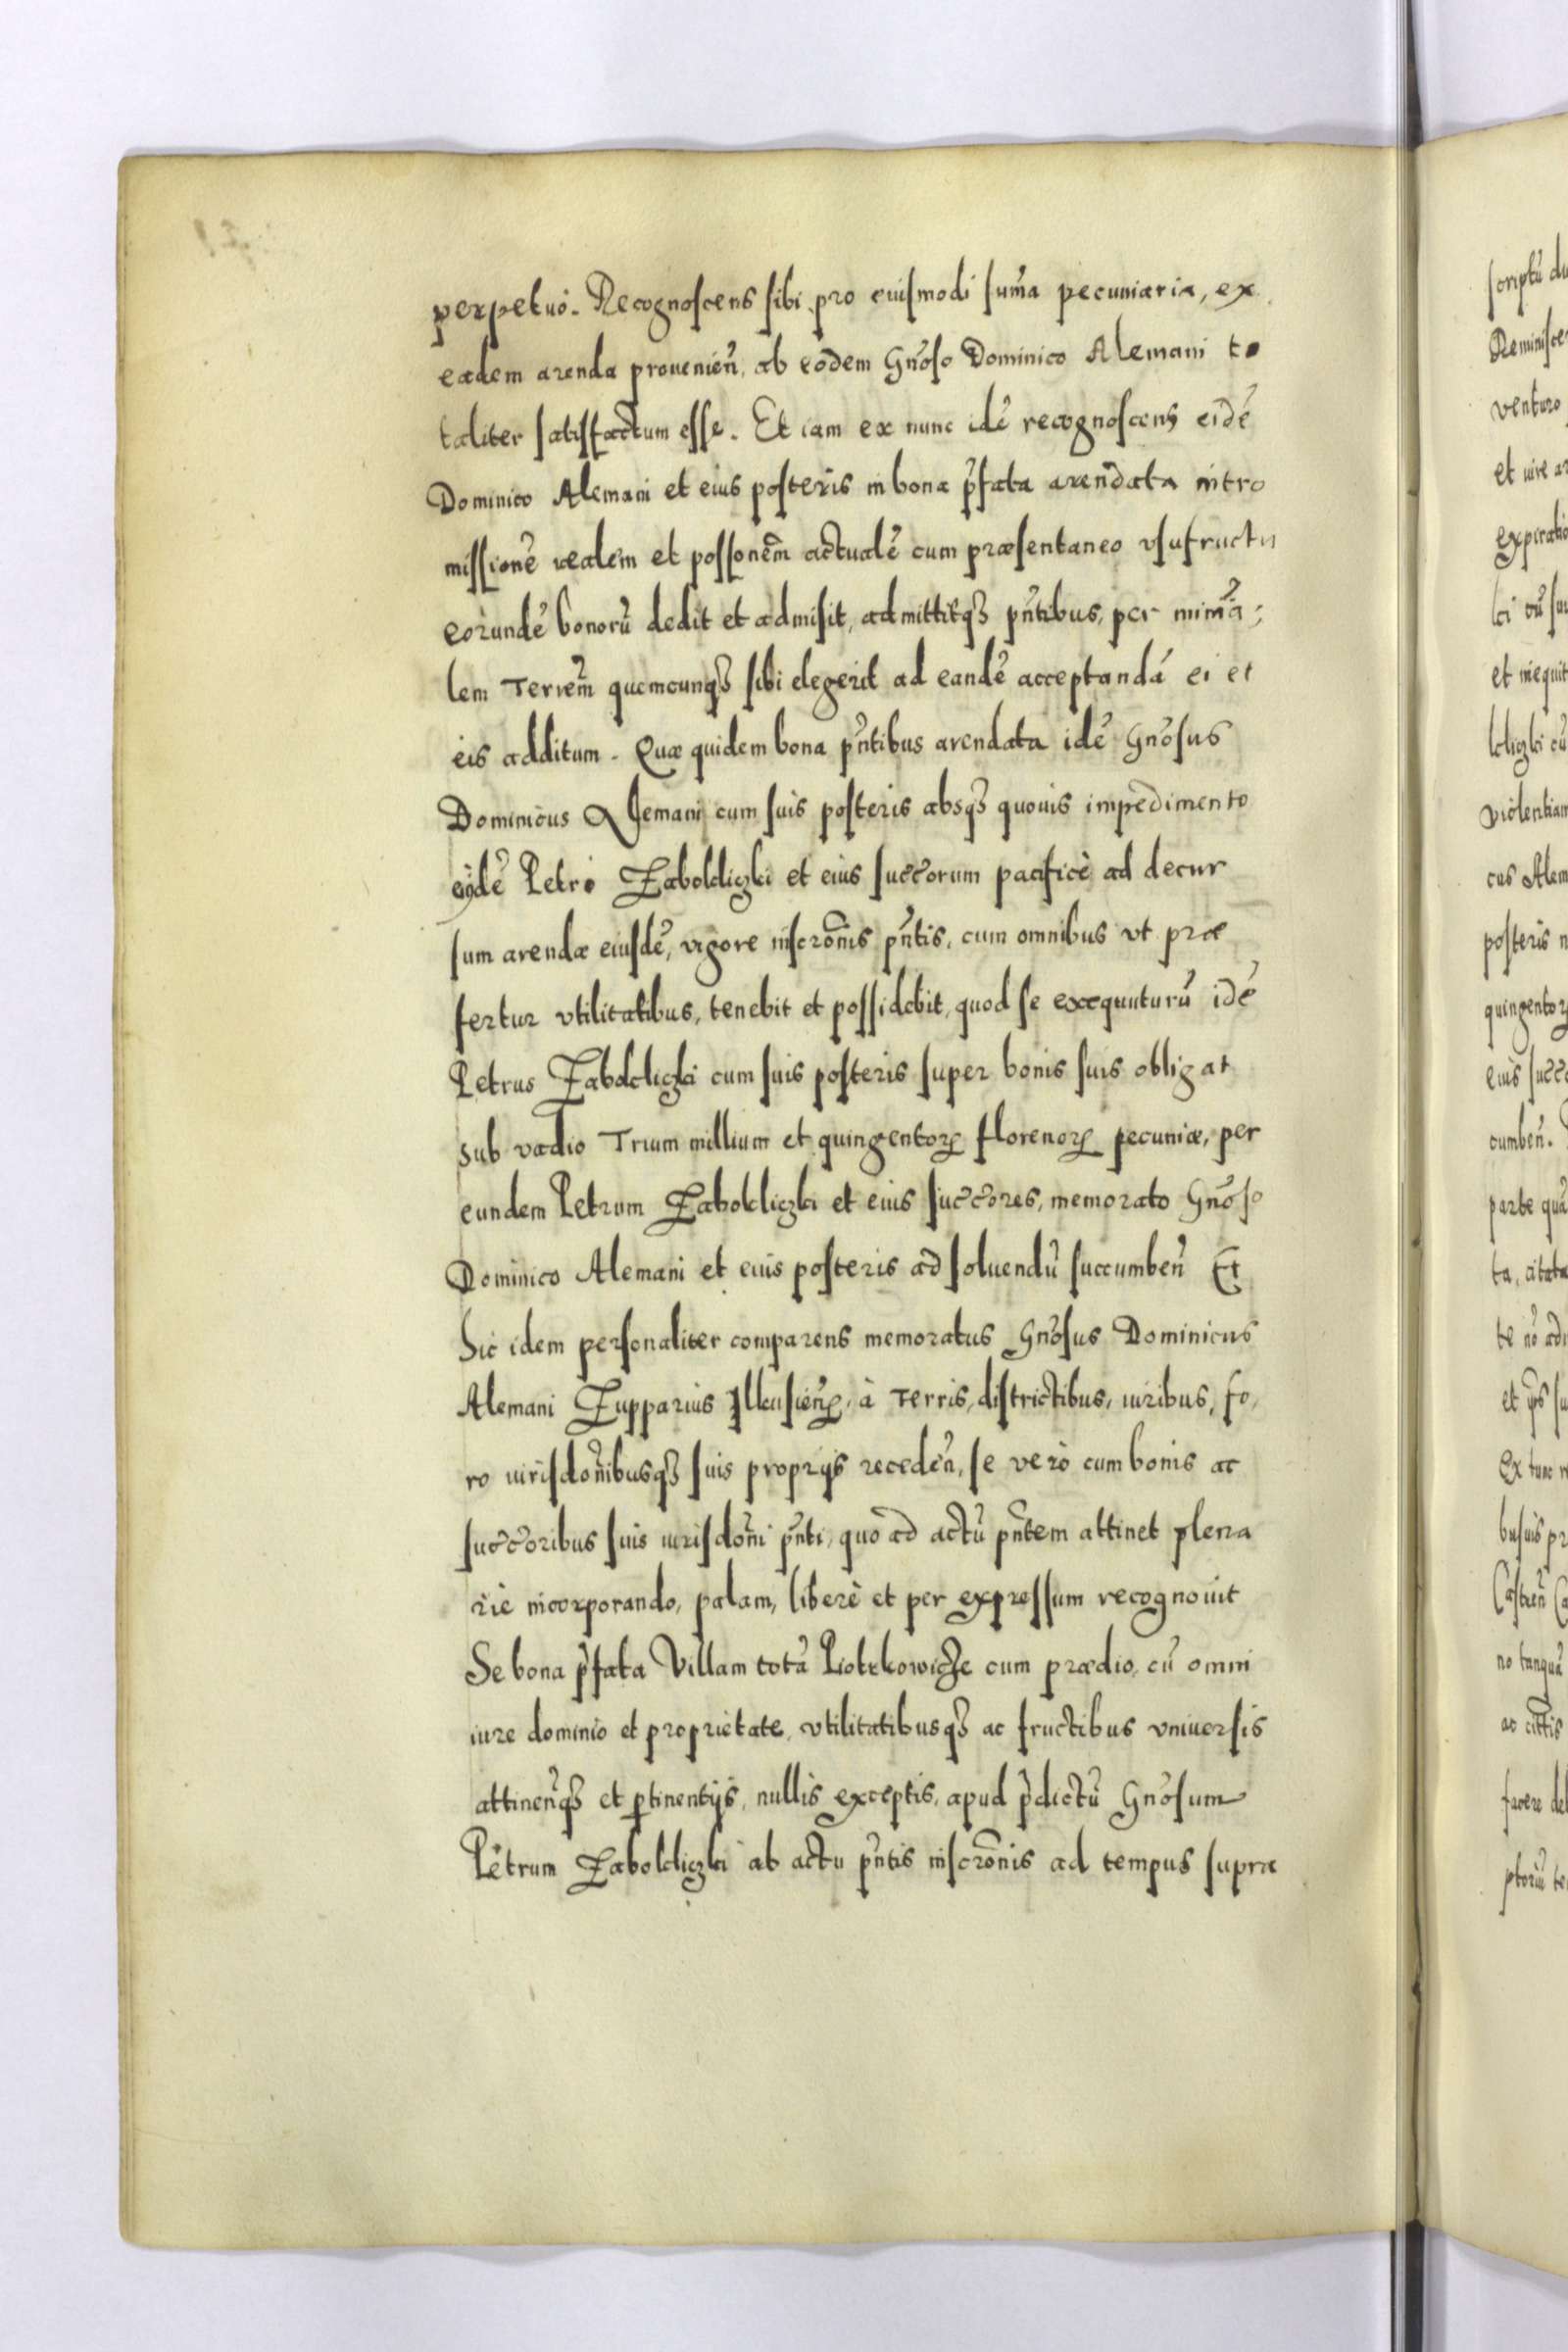 perpetuò. Recognoscens sibi pro euismodi sum̃a pecuniaria, ex
eadem arenda prouenien̄, ab eodem Gn̄oso Dominico Alemani to
taliter satisfactum esse. Et iam ex nunc idē recognoscens eidē
Dominico Alemani et eius posteris in bona p̄fata arendata intro
missionē realem et possonēm actualē cum præsentaneo vsufructu
eorundē bonorū dedit et admisit, admittitqȝ pn̄tibus, per mim̄a;
lem Terrēm quemcunqȝ sibi elegerit ad eandē acceptandā ei et
eis additum. Quæ quidem bona pn̄tibus arendata idē Gn̄osus
Dominicus Alemani cum suis posteris absqȝ quouis impedimento
eijdē Petri Zabokliczki et eius succ̄orum pacificè ad decur
sum arendæ eiusdē, vigore inscrōnis pn̄tis, cum omnibus vt præ
fertur vtilitatibus, tenebit et possidebit, quod se exequuturū idē
Petrus Zabokliczki cum suis posteris super bonis suis obligat
sub vadio Trium millium et quingentorꝝ florenorꝝ pecuniæ, per
eundem Petrum Zabokliczki et eius succ̄ores, memorato Gn̄oso
Dominico Alemani et euis posteris ad soluendū succumben̄ Et
hic idem personaliter comparens memoratus Gn̄osus Dominicus
Alemani Zupparius Ilkusien̄, à Terris, districtibus, iuribus, fo,
ro iurisdōnibusqȝ suis proprijs receden̄, se verò cum bonis ac
succ̄oribus suis iurisdōni pn̄ti, quo ad actū pn̄tem attinet plena
riè incorporando, palam, liberè et per expressum recognouit
Se bona p̄fata Villam totā Piotrkowicze cum prædio, cū omni
iure dominio et proprietate, vtilitatibusqȝ ac fructibus vniuersis
attinen̄qȝ et ꝑtinentijs, nullis exceptis, apud p̄dictū Gn̄osum
Petrum Zabokliczki ab actu pn̄tis inscrōnis ad tempus supra